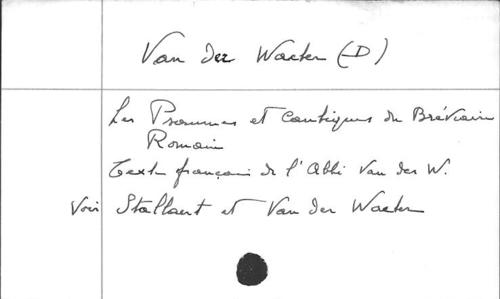 Van der Waeter (-D)
Les Psaumes et Cantiques du Bréviaire
Romain
Texte français de l'Abbé Van der W.
Voir Stallaert et Van der Waeter